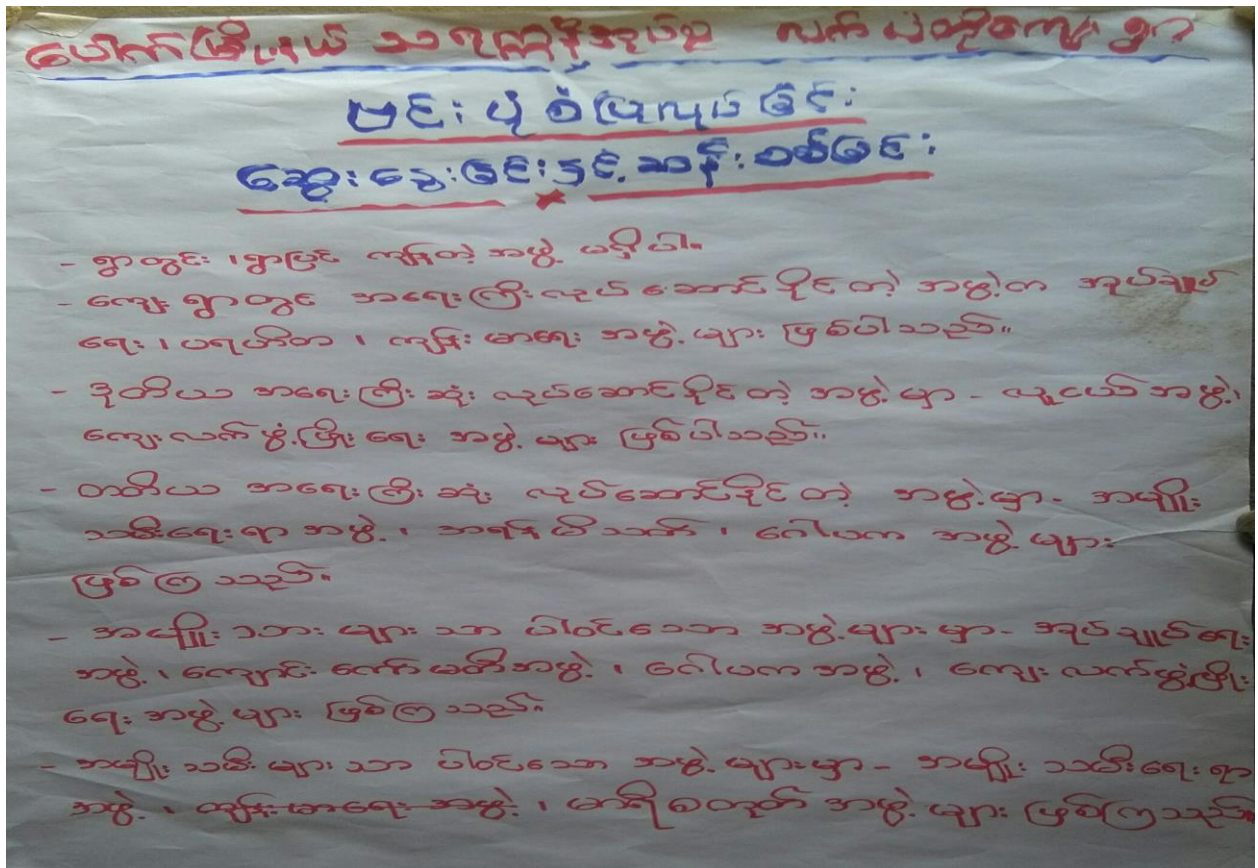 ပေါက်မြို့နယ် သရက္ကန်အုပ်စု လက်ပံတိုကျေးရွာ
ဗင်းပုံစံပြုလုပ်ခြင်း
ဆွေးနွေးခြင်းနှင့်ဆန်းစစ်ခြင်း
- ရွာတွင်း၊ ရွာပြင် ကျန်တဲ့အဖွဲ့ မရှိပါ။
- ကျေးရွာတွင် အရေးကြီးလုပ်ဆောင်နိုင်တဲ့ အဖွဲ့က အုပ်ချုပ်
ရေး၊ ပရဟိတ၊ ကျန်းမာရေး အဖွဲ့များ ဖြစ်ပါသည်။
- ဒုတိယ အရေးကြီးဆုံး လုပ်ဆောင်နိုင်တဲ့ အဖွဲ့မှာ - လူငယ်အဖွဲ့၊
ကျေးလက်ဖွံ့ဖြိုးရေး အဖွဲ့များ ဖြစ်ပါသည်။
- တတိယ အရေးကြီးဆုံး လုပ်ဆောင်နိုင်တဲ့ အဖွဲ့မှာ - အမျိုး
သမီးရေးရာအဖွဲ့၊ အရန်မီးသတ်၊ ဂေါပက အဖွဲ့များ
ဖြစ်ကြသည်။
- အမျိုးသားများသာ ပါဝင်သော အဖွဲ့များမှာ - အုပ်ချုပ်ရေး
အဖွဲ့၊ ကျောင်းကော်မတီအဖွဲ့၊ ဂေါပကအဖွဲ့၊ ကျေးလက်ဖွံ့ဖြိုး
ရေး အဖွဲ့များ ဖြစ်ကြသည်။
- အမျိုးသမီးများသာ ပါဝင်သော အဖွဲ့များမှာ - အမျိုးသမီးရေးရာ
အဖွဲ့၊ ကျန်းမာရေး အဖွဲ့၊ မာရီစတုတ် အဖွဲ့များ ဖြစ်ကြသည်။